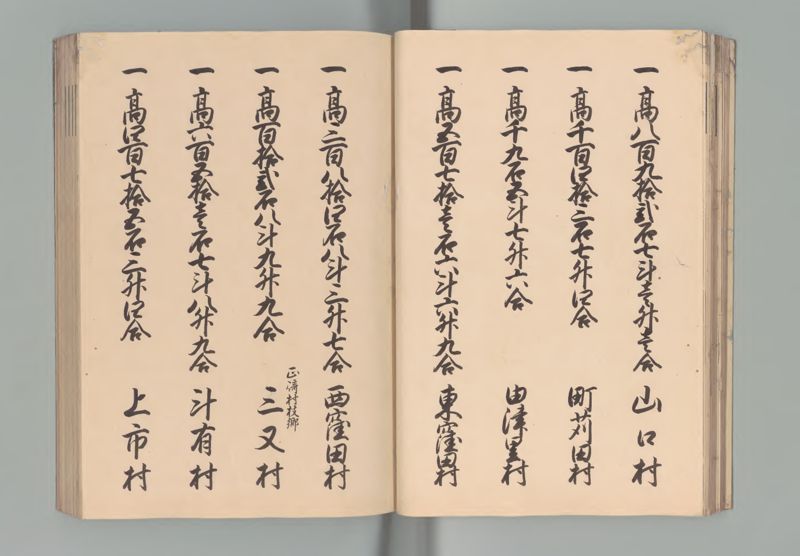 一 高八百九拾弐石七斗壱升壱合 山口村
一 高千百四拾三石七升四合 町苅田村
一 高千九石五斗七升六合 由津里村
一 高五百七拾壱石六斗六升九合 東窪田村
一 高三百八拾四石八斗三升七合 西窪田村
正崎村枝郷
一 高百拾弐石八斗九升九合 三又村
一 高六百五拾壱石七斗八升九合 斗有村
一 高四百七拾五石三升四合 上市村